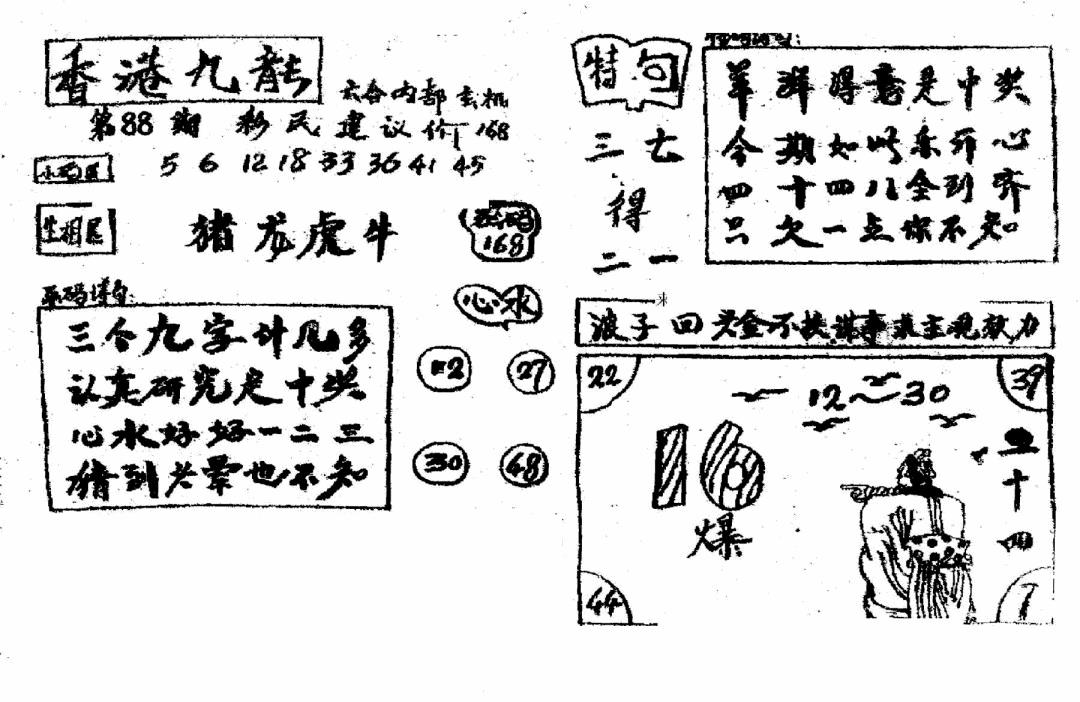 香港九龍
六合内部玄机
第88期 彩民建议价168
5 6 12 18 33 36 41 45
生相區
猪龙虎牛
168
心水
三个九字计几多
认真研究是中奖
心水好好一二三
猜到
也不知
27
30
48
特句
三七
得
二一
羊洋得意是中奖
今期如此乐开心
四十四八全到齐
只欠一点你不知
浪子回头金不换
22
39
12~30
16
爆
十四
44
7